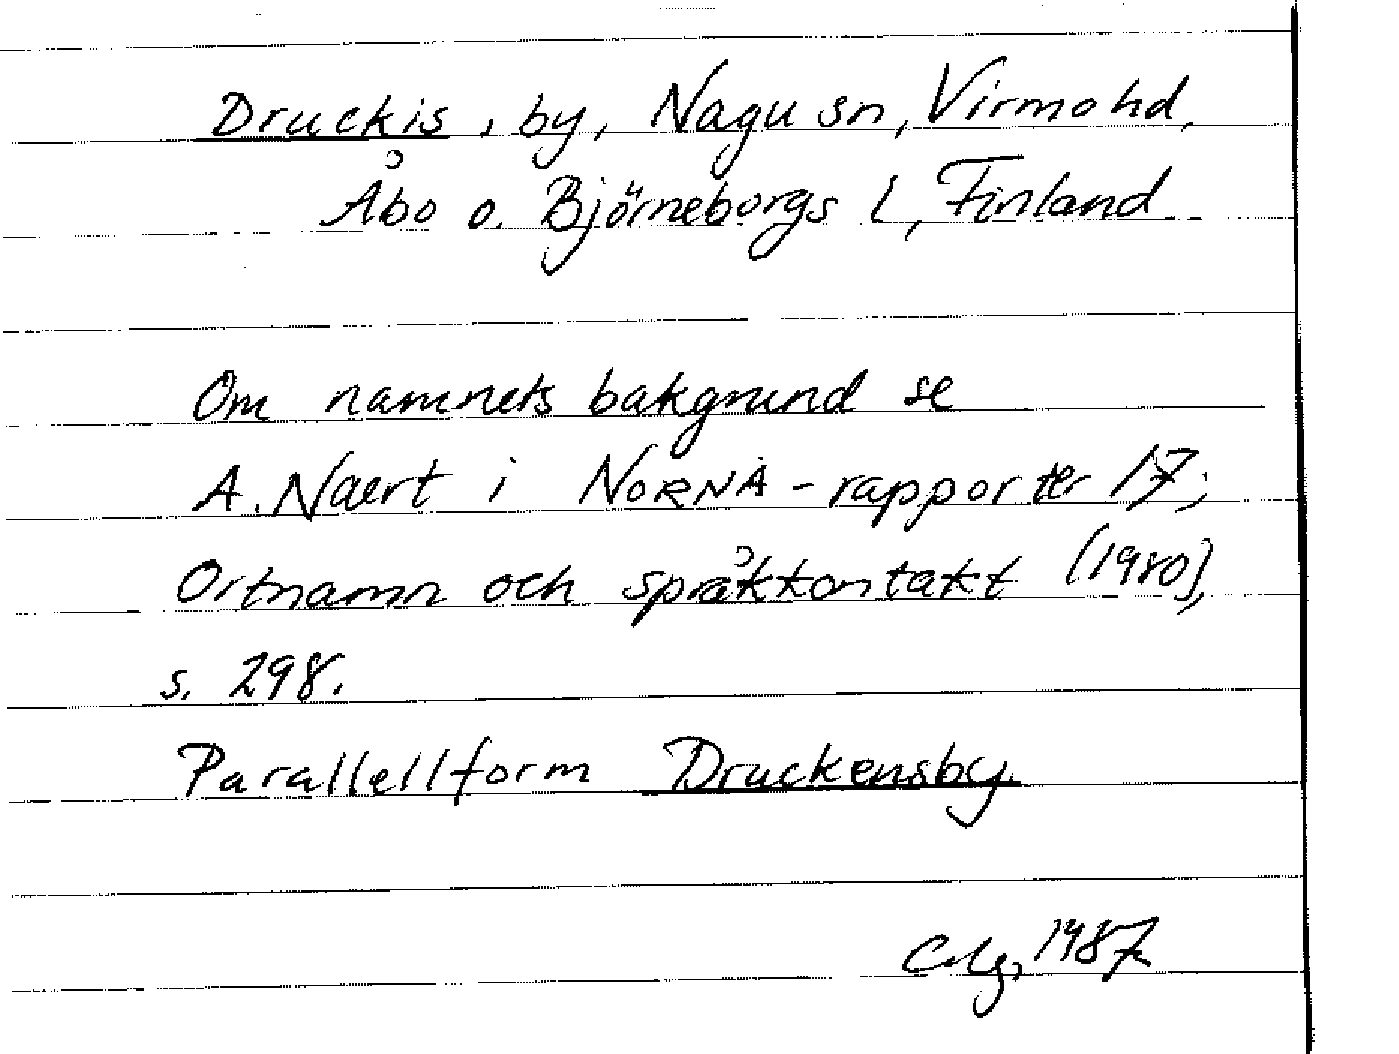 Druckis, by, Nagu sn, Virmo hd,
Åbo o. Björneborgs l, Finland
Om namnets bakgrund se
A. Naert i NORNA-rapporter 17;
Ortnamn och språkkontakt (1980),
s. 298.
Parallellform Druckensby.
1987